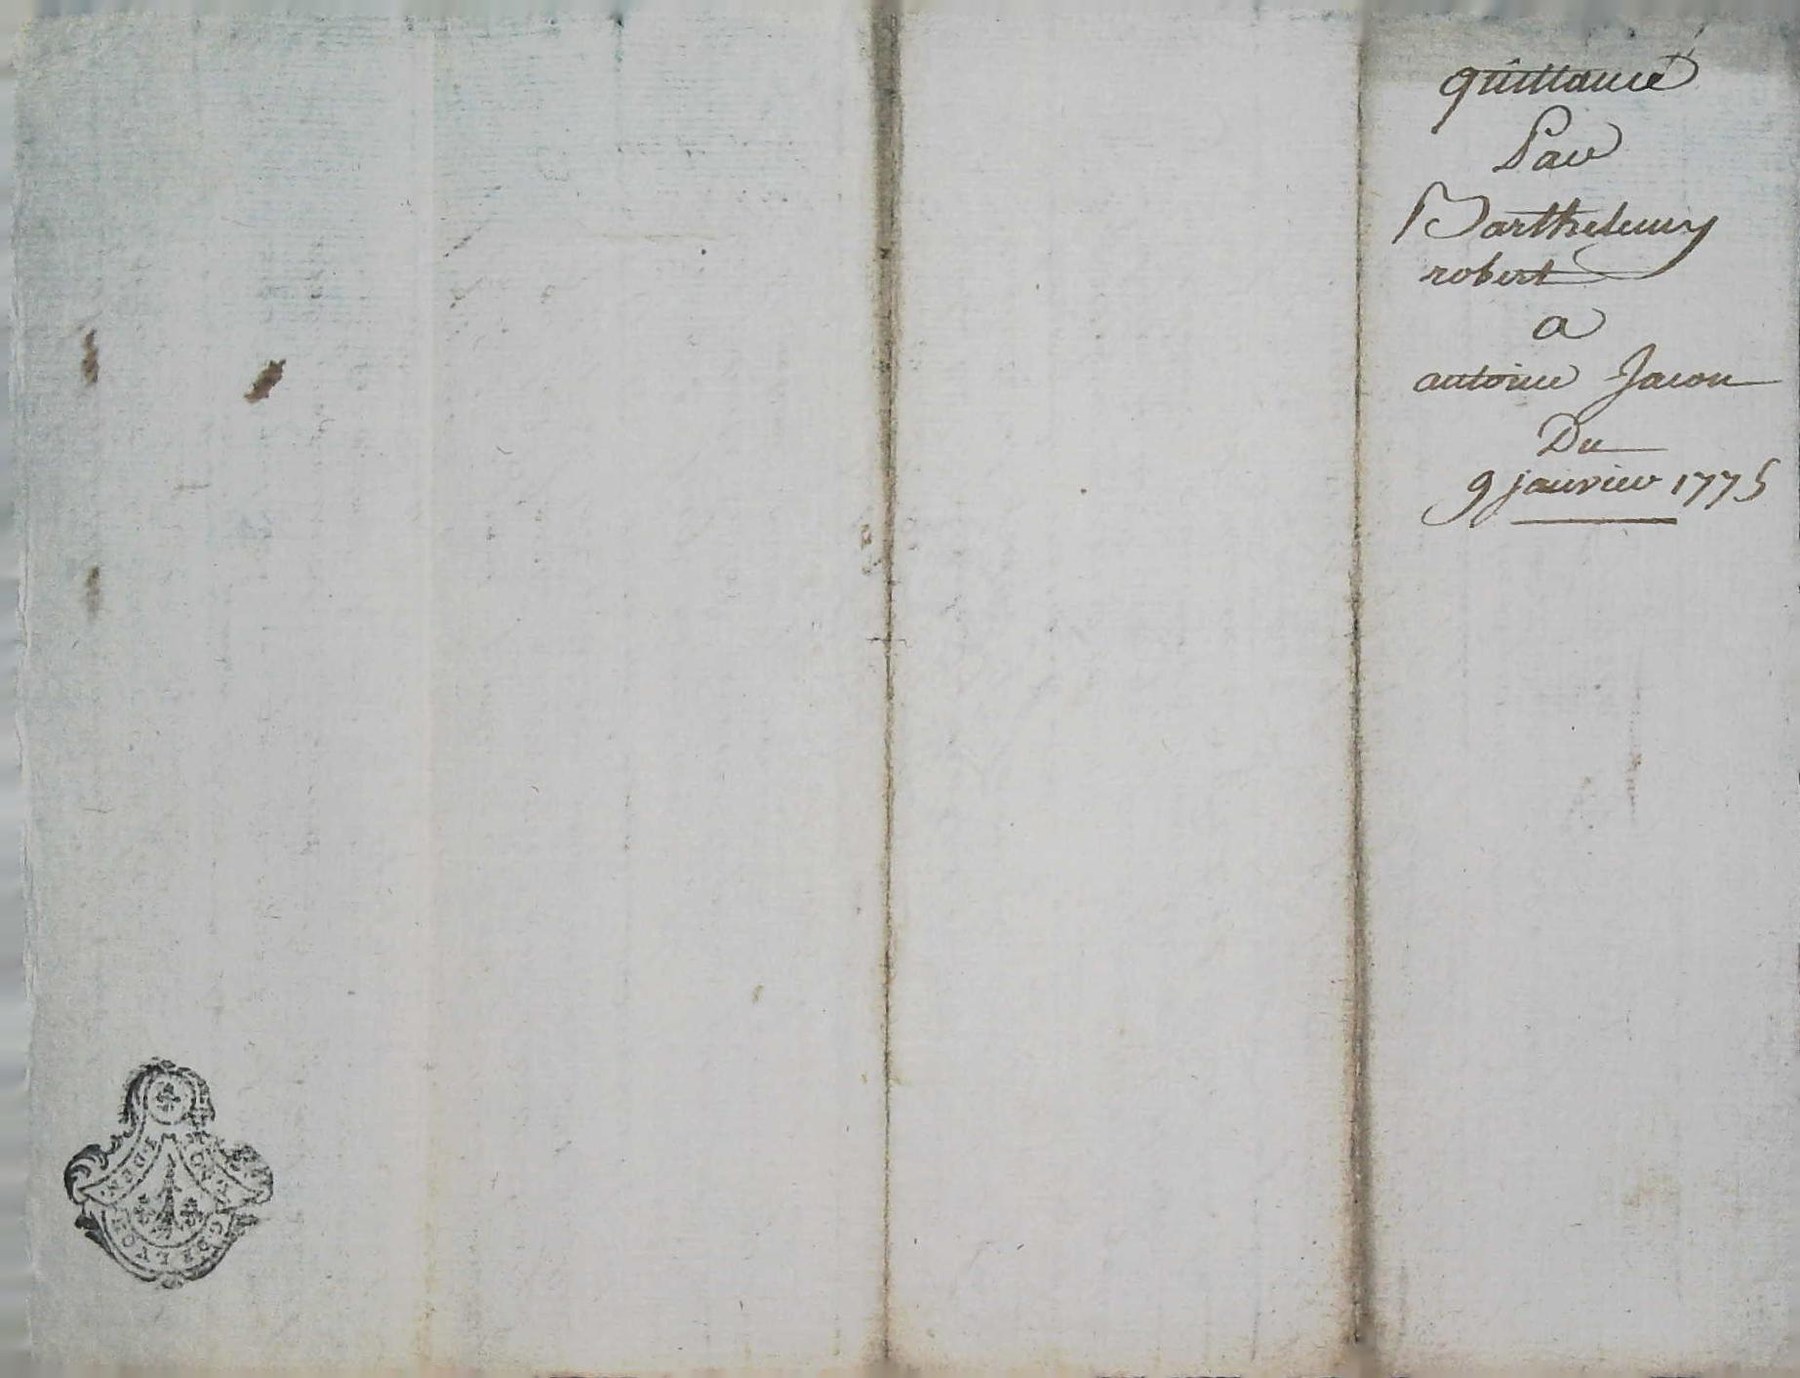 quittance
Par
Barthelemy
robert
a
antoine Jacon
Du
9 janvier 1775